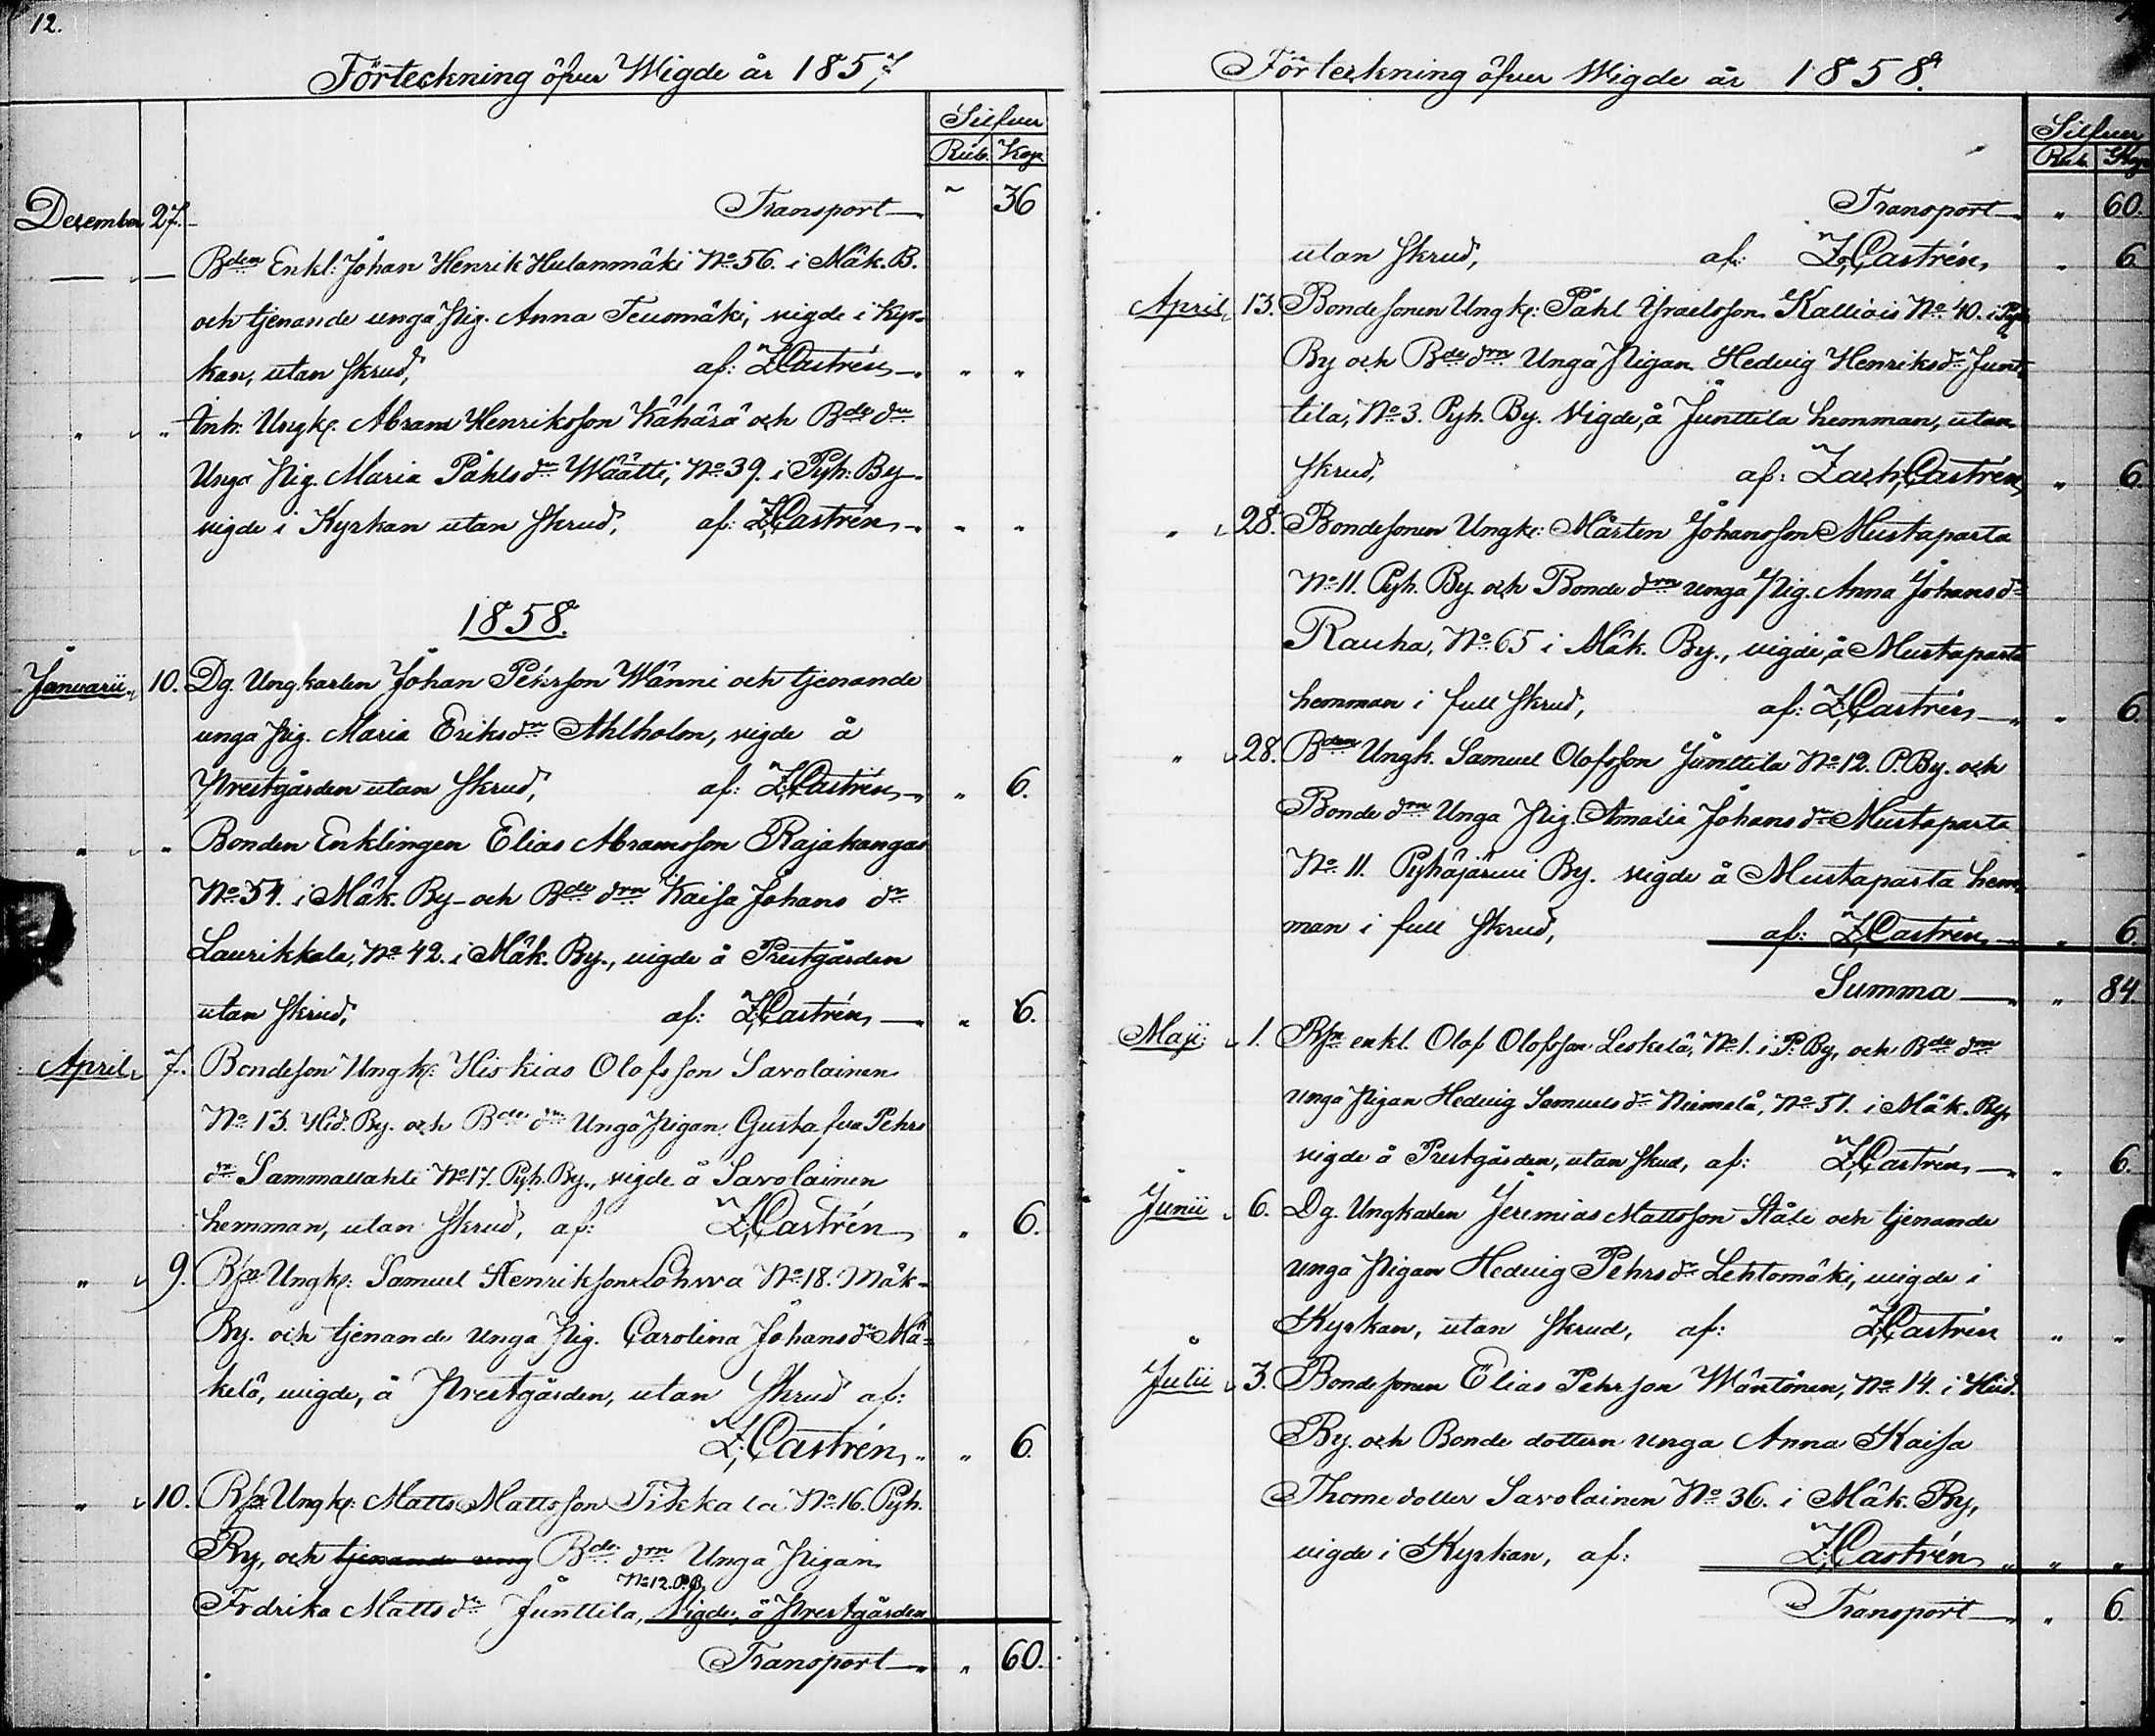 12.
Förteckning öfver Wigde år 1857
Silfver
Rub. Kop.
Transport " 36
December 27.
Bden Enkl: Johan Henrik Hulanmäki No 56. i Mäk. B.
och tjenande unga Pig. Anna Teuomäki, vigde i Kyr-
kan, utan skrud, af: Z. Castrén " "
" " Inh: Ungk: Abram Henriksson Kähärä och Bde dn
Unga Pig. Maria Påhls dr Wäätti, No 39. i Pyh: By
vigde i Kyrkan utan skrud, af: Z. Castrén " "
1858.
Januarii 10. Dg. Ungkarlen Johan Pehrson Wänni och tjenande
unga Pig. Maria Eriksdr Ahlholm, vigde å
Prestgården utan skrud, af: Z. Castrén " 6.
" " Bonden Enklingen Elias Abramsson Rajakangas
No 54. i Mäk. By och Bde drn Kaisa Johans dr
Laurikkala, No 42. i Mäk. By., vigde å Prestgården
utan skrud, af: Z. Castrén " 6.
April 7. Bondeson Ungk: Hiskias Olofsson Savolainen
No 13. Hid. By. och Bde dn Unga Pigan Gustafva Pehrs
dr Sammallahti No 17. Pyh. By., vigde å Savolainen
hemman, utan skrud, af: Z. Castrén " 6.
" 9. Bsn Ungk: Samuel Henrikson Lohwa No 18. Mäk-
By. och tjenande unga Pig. Carolina Johans dr Mä-
kelä, vigde, å Prestgården, utan skrud af:
Z. Castrén " 6.
" 10. Bsn Ungk: Matts Mattsson Tikkala No 16. Pyh.
By, och tjenande ung Bde drn Unga Pigan
No 12. P.B.
Frdrika Matts dr Junttila, Vigde, å Prestgården
Transport " 60.
Förteckning öfver Wigde år 1858.
Silfver
Rub. Kop.
Transport " 60.
utan skrud, af: Z. Castrén " 6
April 13. Bondesonen Ungk: Påhl Yraelsson Kalliois No 40. i Pyh
By och Bde drn Unga Pigan Hedvig Henriksdr Junt-
tila, No 3. Pyh. By. Vigde, å Junttila hemman, utan
skrud, af: Zach. Castrén " 6.
" 28. Bondesonen Ungk: Mårten Johansson Mustaparta
No 11. Pyh. By. och Bonde drn unga Pig. Anna Johans dr
Rauha, No 65 i Mäk. By., vigde, å Mustaparta
hemman i full skrud, af: Z. Castrén " 6
" 28. Bden Ungk. Samuel Olofsson Junttila No 12. P. By. och
Bonde drn Unga Pig. Amalia Johans dr Mustaparta
No 11. Pyhäjärvi By. vigde å Mustaparta hem-
man i full skrud, af: Z. Castrén " 6
Summa " 84.
Maji 1. Bsn enkl. Olof Olofsson Leskelä, No 1. i P: By, och Bde drn
unga Pigan Hedvig Samuels dr Niemelä, No 51. i Mäk. By,
vigde å Prestgården, utan skud, af: Z. Castrén " 6.
Junii 6. Dg. Ungkarlen Jeremias Mattsson Ståle och tjenande
unga Pigan Hedvig Pehrs dr Lehtomäki, vigde i
Kyrkan, utan skrud, af: Z. Castrén " "
Julii 3. Bondesonen Elias Pehrson Wäntönen, No 14. i Hid.
By. och Bonde dottern unga Anna Kaisa
Thome dotter Savolainen No 36. i Mäk. By,
vigde i Kyrkan, af: Z. Castrén " "
Transport " 6.